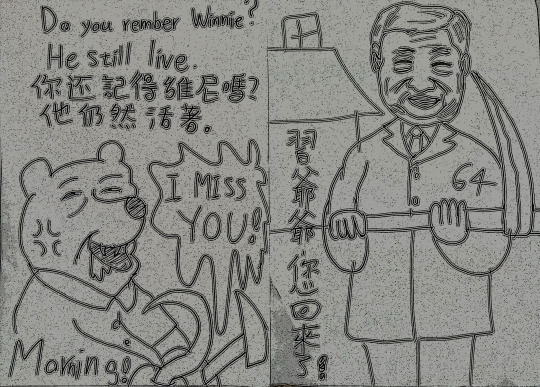 Do you rember Winnie?
He still live.
你还記得維尼嗎?
他仍然活著。
I MISS
YOU!
Morning!
習爷爷爷,您回來了!
64